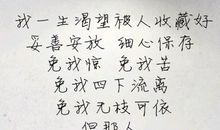 我一生渴望被人收藏好
妥善安放 细心保存
免我惊 免我苦
免我四下流离
免我无枝可依
但那人